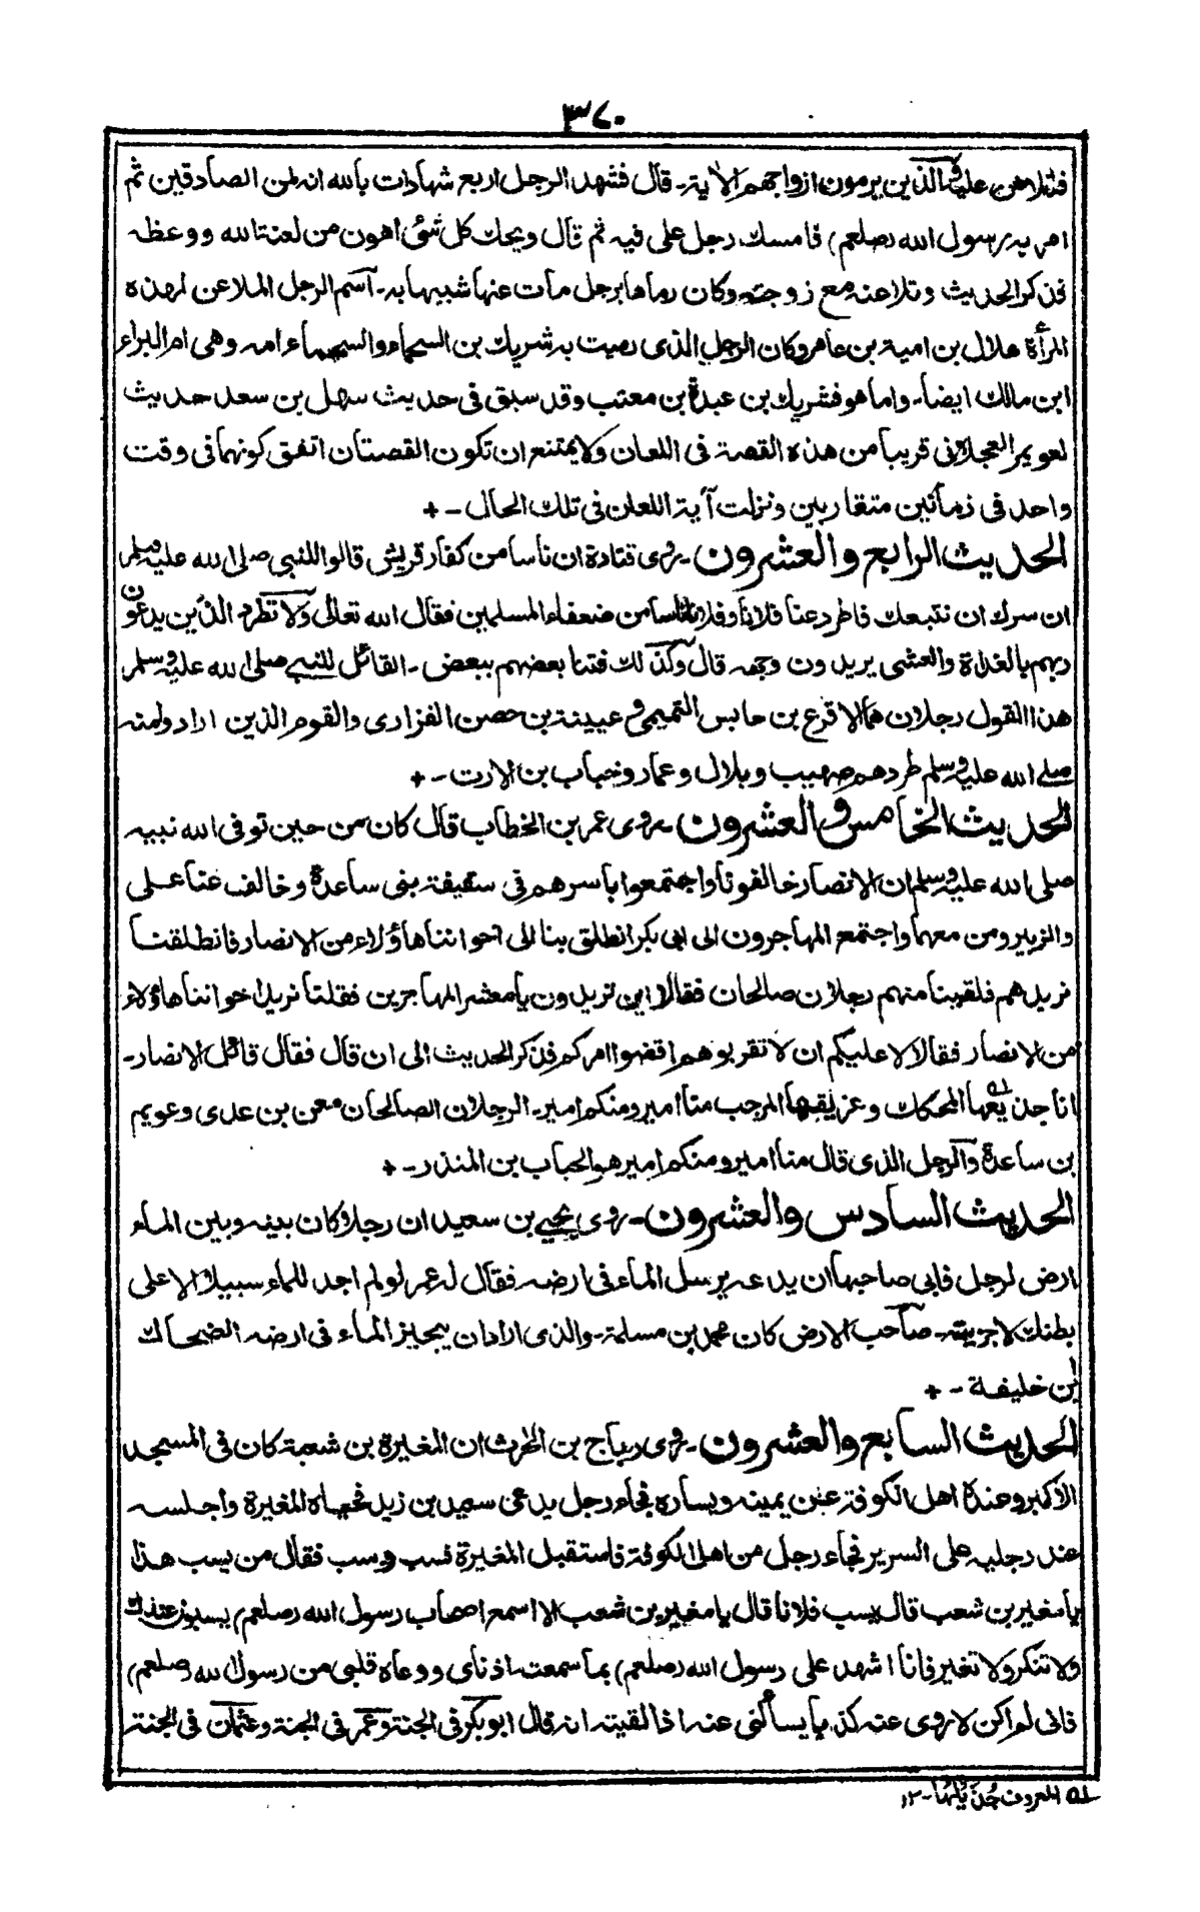 ٣٧٠
فتلاهن عليه والذين يرمون ازواجهم الاٰية۔ قال فشهد الرجل اربع شهادات بالله انه لمن الصادقين ثم
امر به رسول الله (صلعم) فامسك رجل على فيه ثم قال ويحك كل شئ اهون من لعنة الله ووعظه
فذكر الحديث وتلاعنه مع زوجته وكان رماها برجل مات عنها شبيها به۔ آسم الرجل الملاعن لهذه
المرأة هلال بن امية بن عامر وكان الرجل الذى رميت به شريك بن السحماء والسحماء امه وهى ام البراء
ابن مالك ايضاً۔ واما هو فشريك بن عبدة بن معتب وقد سبق فى حديث سهل بن سعد حديث
لعويمر العجلانى قريباً من هذه القصة فى اللعان ولا يمتنع ان تكون القصتان اتفق كونهما فى وقت
واحد فى زمانين متقاربين ونزلت آية اللعان فى تلك الحال ۔ +
الحديث الرابع والعشرون۔ روى قتادة ان ناسا من كفار قريش قالوا للنبى صلى الله عليه وسلم
ان سرك ان نتبعك فاطرد عنا فلانا وفلانا ناسا من ضعفاء المسلمين فقال الله تعالى ولا تطرد الذين يدعون
ربهم بالغداة والعشى يريدون وجهه قال وكذلك فتنا بعضهم ببعض ۔ القائل للنبى صلى الله عليه وسلم
هذا القول رجلان هما الاقرع بن حابس التميمى وعيينة بن حصن الفزارى والقوم الذين ارادوا منه
صلى الله عليه وسلم طردهم صهيب وبلال وعمار وخباب بن الارت ۔ +
الحديث الخامس والعشرون۔ روى عمر بن الخطاب قال كان من حين توفى الله نبيه
صلى الله عليه وسلم ان الانصار خالفونا واجتمعوا باسرهم فى سقيفة بنى ساعدة وخالف عنا على
والزبير ومن معهما واجتمع المهاجرون الى ابى بكر انطلق بنا الى اخواننا هاؤلاء من الانصار فانطلقنا
نريدهم فلقينا منهم رجلان صالحان فقالا اين تريدون يا معشر المهاجرين فقلنا نريد اخواننا هاؤلاء
من الانصار فقالا لا عليكم ان لا تقربوهم اقضوا امركم فذكر الحديث الى ان قال فقال قائل الانصار۔
انا جذيعها المحكك وعزيقها المرجب منا امير ومنكم امير۔ الرجلان الصالحان معن بن عدى وعويم
بن ساعدة والرجل الذى قال منا امير ومنكم امير هو الحباب بن المنذر ۔ +
الحديث السادس والعشرون۔ روى يحيى بن سعيد ان رجلا كان بينه وبين الماء
ارض لرجل فابى صاحبها ان يدعه يرسل الماء فى ارضه فقال له عمر لو لم اجد للماء سبيلا الا على
بطنك لاجريته۔ صاحب الارض كان محمد بن مسلمة۔ والذى اراد ان يجيز الماء فى ارضه الضحاك
ابن خليفة ۔ +
الحديث السابع والعشرون۔ روى رياح بن الحرث ان المغيرة بن شعبة كان فى المسجد
الاكبر وعنده اهل الكوفة عن يمينه ويساره فجاء رجل يدعى سعيد بن زيد فحياه المغيرة واجلسه
عند رجليه على السرير فجاء رجل من اهل الكوفة فاستقبل المغيرة فسب وسب فقال من يسب هذا
يا مغير بن شعب قال يسب فلانا قال يا مغير بن شعب الا اسمع اصحاب رسول الله (صلعم) يسبون عندك
ولا تنكر ولا تغير فانا اشهد على رسول الله (صلعم) بما سمعت اذناى ووعاه قلبى من رسول الله (صلعم)
فانى لم اكن لاروى عنه كذبا يسألنى عنه اذا لقيته انه قال ابوبكر فى الجنة وعمر فى الجنة وعثمان فى الجنة
له المعروف جُذَيْلُهَا۔ ١٢